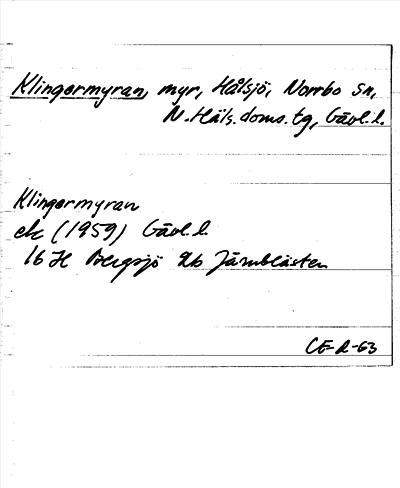 Klingermyran, myr, Hålsjö, Norrbo sn,
N. Häls. doms. tg, Gävl. l.
Klingermyran
ek (1959) Gävl. l.
16 H Bergsjö 9b Järnblästen
CE-R-63